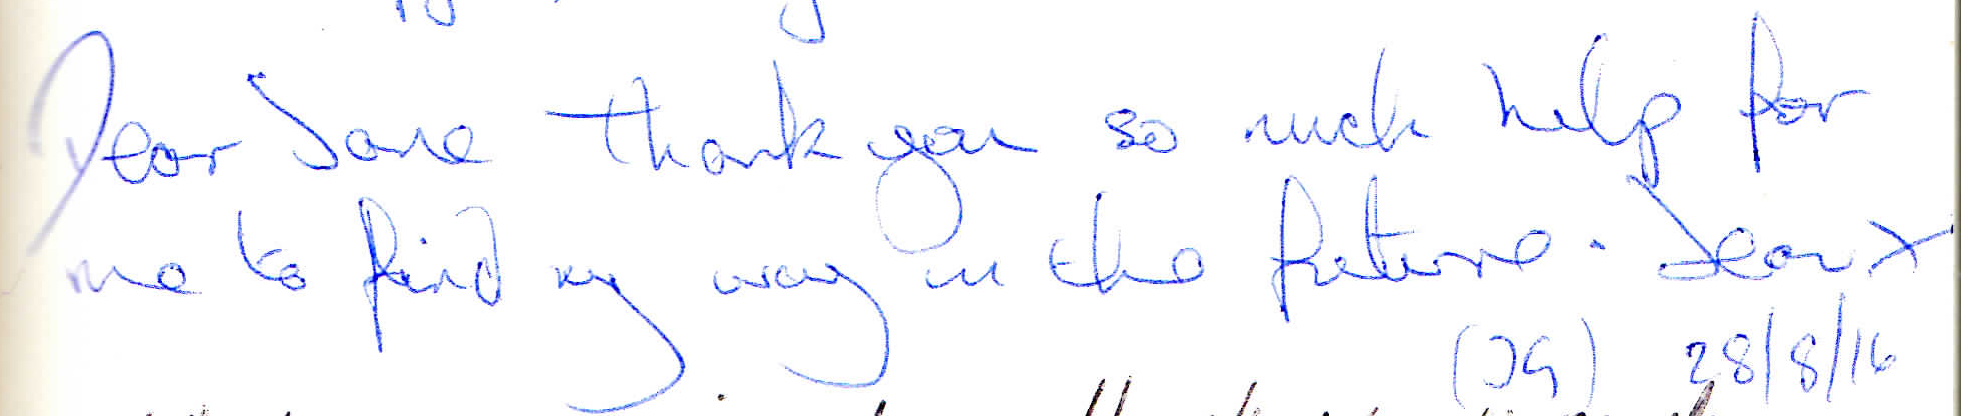 Dear Jane thank you so much help for
me to find my way in the future. Jean x
(JG) 28/8/16